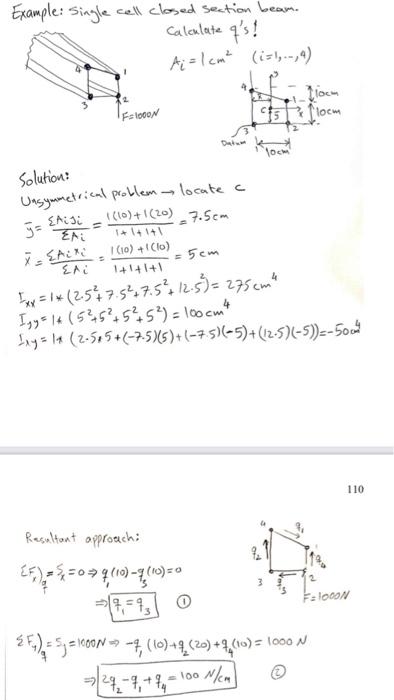 Example: Single cell closed section beam.
Calculate q's!
Aᵢ = 1 cm² (i=1,--,4)
4
1
3
2
F=1000N
4
y
10cm
1
x̄
C
x
10cm
ȳ
3
2
Datum
10cm
Solution:
Unsymmetrical problem → locate c
ȳ = ΣAᵢyᵢ / ΣAᵢ = (1(10)+1(20)) / (1+1+1+1) = 7.5cm
x̄ = ΣAᵢxᵢ / ΣAᵢ = (1(10)+1(10)) / (1+1+1+1) = 5 cm
Ixx = 1*(2.5²+7.5²+7.5²+12.5²) = 275 cm⁴
Iyy = 1*(5²+5²+5²+5²) = 100 cm⁴
Ixy = 1*(2.5*5+(-7.5)(5)+(-7.5)(-5)+(12.5)(-5)) = -50cm⁴
110
Resultant approach:
4
q₁
1
q₂
q₄
3
q₃
2
F=1000N
ΣFx)q = Sx = 0 ⇒ q₁(10)-q₃(10)=0
⇒ q₁ = q₃ ①
ΣFy)q = Sy = 1000N ⇒ -q₁(10)+q₂(20)+q₄(10) = 1000 N
⇒ 2q₂-q₁+q₄ = 100 N/cm ②